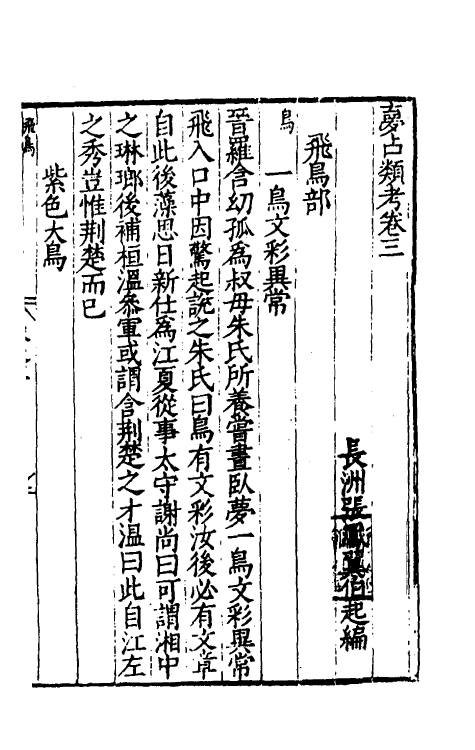 夢占類考卷三
長洲張鳳翼伯起編
飛鳥部
鳥
一鳥文彩異常
晉羅含幼孤爲叔母朱氏所養嘗晝臥夢一鳥文彩異常
飛入口中因驚起說之朱氏曰鳥有文彩汝後必有文章
自此後藻思日新仕爲江夏從事太守謝尚曰可謂湘中
之琳瑯後補桓溫叅軍或謂含荆楚之才溫曰此自江左
之秀豈惟荆楚而已
紫色大鳥
飛鳥